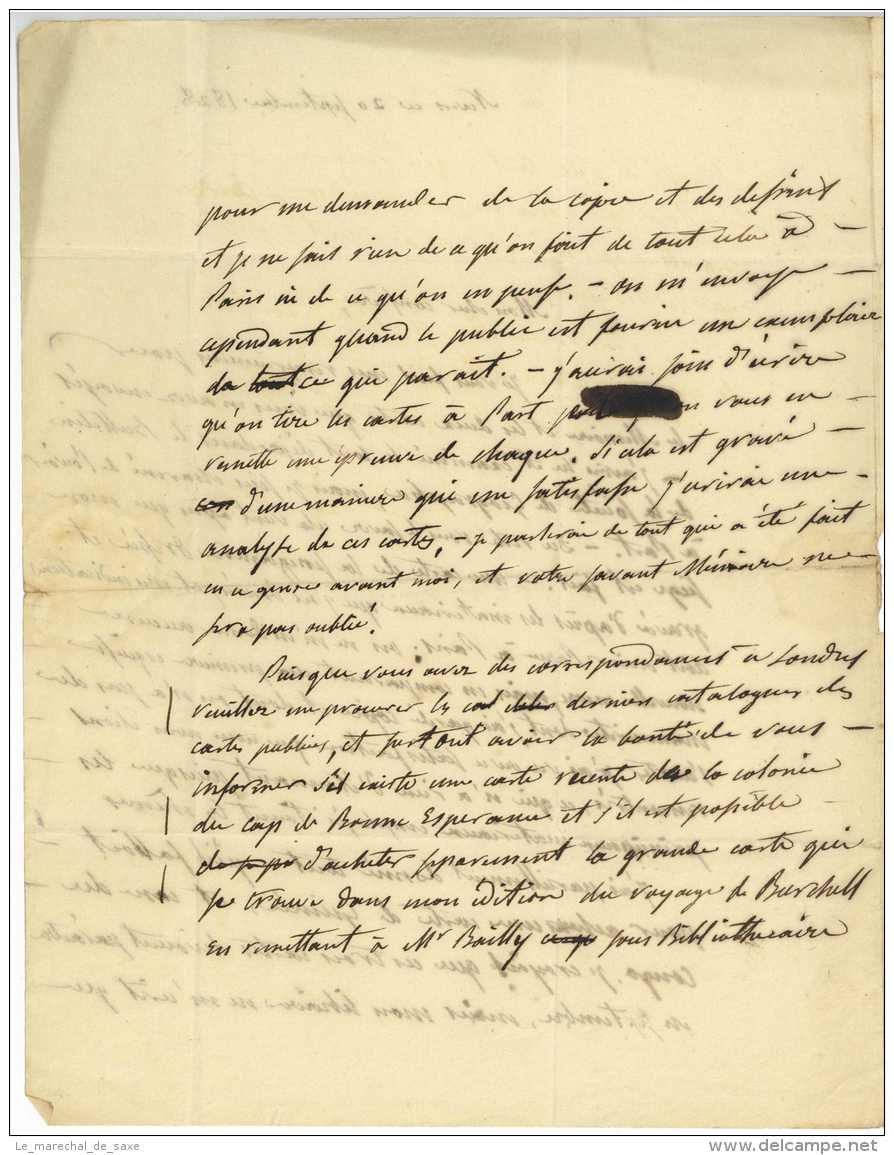 pour me demander de la copie et des dessins
et je ne sais rien de ce qu'on fait de tout cela à —
Paris ni de ce qu'on en pense. — on m'envoye —
cependant quand le public est fourni un exemplaire
de tout ce qui parait. — j'aurai soin d'écrire
qu'on tire les cartes à Part vous en —
remette une épreuve de chaque. Si cela est gravé —
d'une maniere qui me satisfasse j'écrirai une —
analyse de ces cartes, — je parlerai de tout qui a été fait
en ce genre avant moi, et votre savant Mémoire ne —
sera pas oublié.
Puisque vous avez des correspondances à Londres
veuillez me procurer les derniers catalogues des
cartes publiées, et surtout avoir la bonté de vous —
informer s'il existe une carte recente de la colonie
du cap de Bonne Esperance et s'il est possible —
d'acheter separement la grande carte qui
se trouve dans mon édition du voyage de Burchell
En remettant à Mr Bailly sous Bibliothecaire
Le_marechal_de_saxe
www.delcampe.net